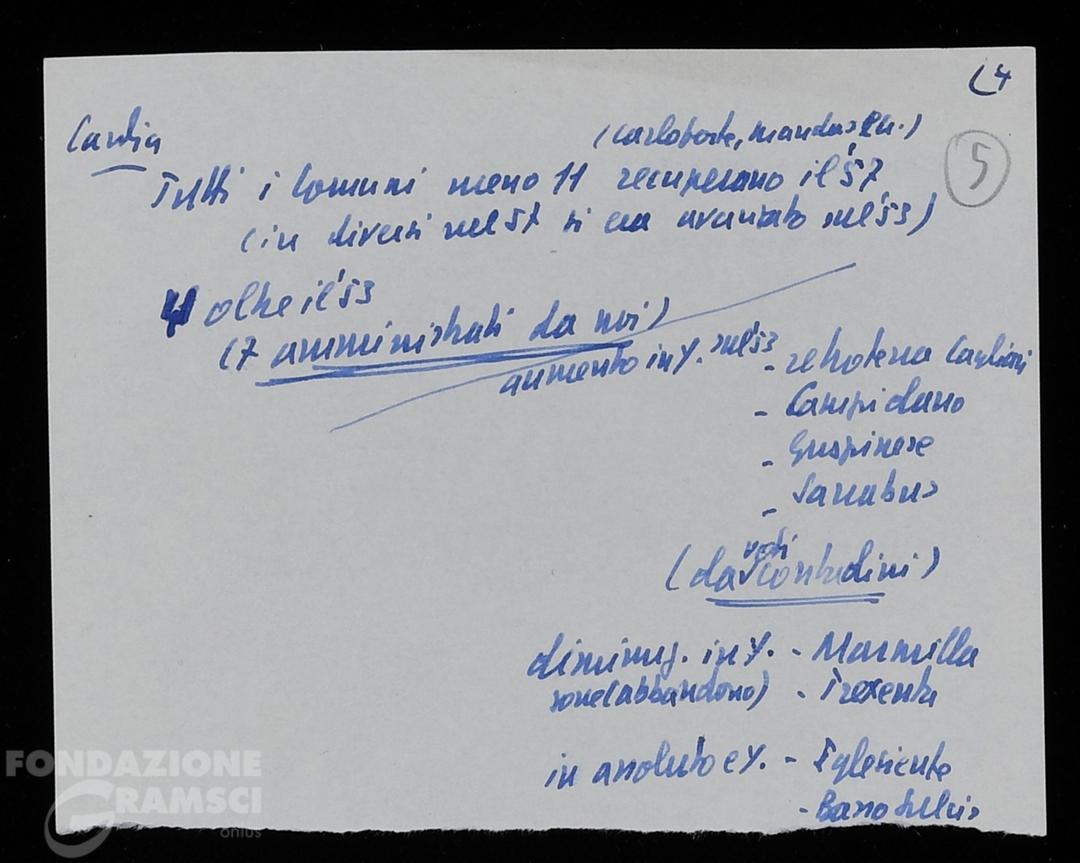 (4
Cardia
(Carloforte, Mandas ecc.)
5
Tutti i Comuni meno 11 recuperano il '57
(in diversi nel 57 si era avanzato sul '53)
41 oltre il '53
(7 amministrati da noi)
aumento in %. sul '53 - retroterra Cagliari
- Campidano
- Guspinese
- Sarrabus
voti
(dai contadini)
diminuz. in %. - Marmilla
zone (abbandono) - Trexenta
in assoluto e %. - Iglesiente
- Basso Sulcis
FONDAZIONE
GRAMSCI
onlus